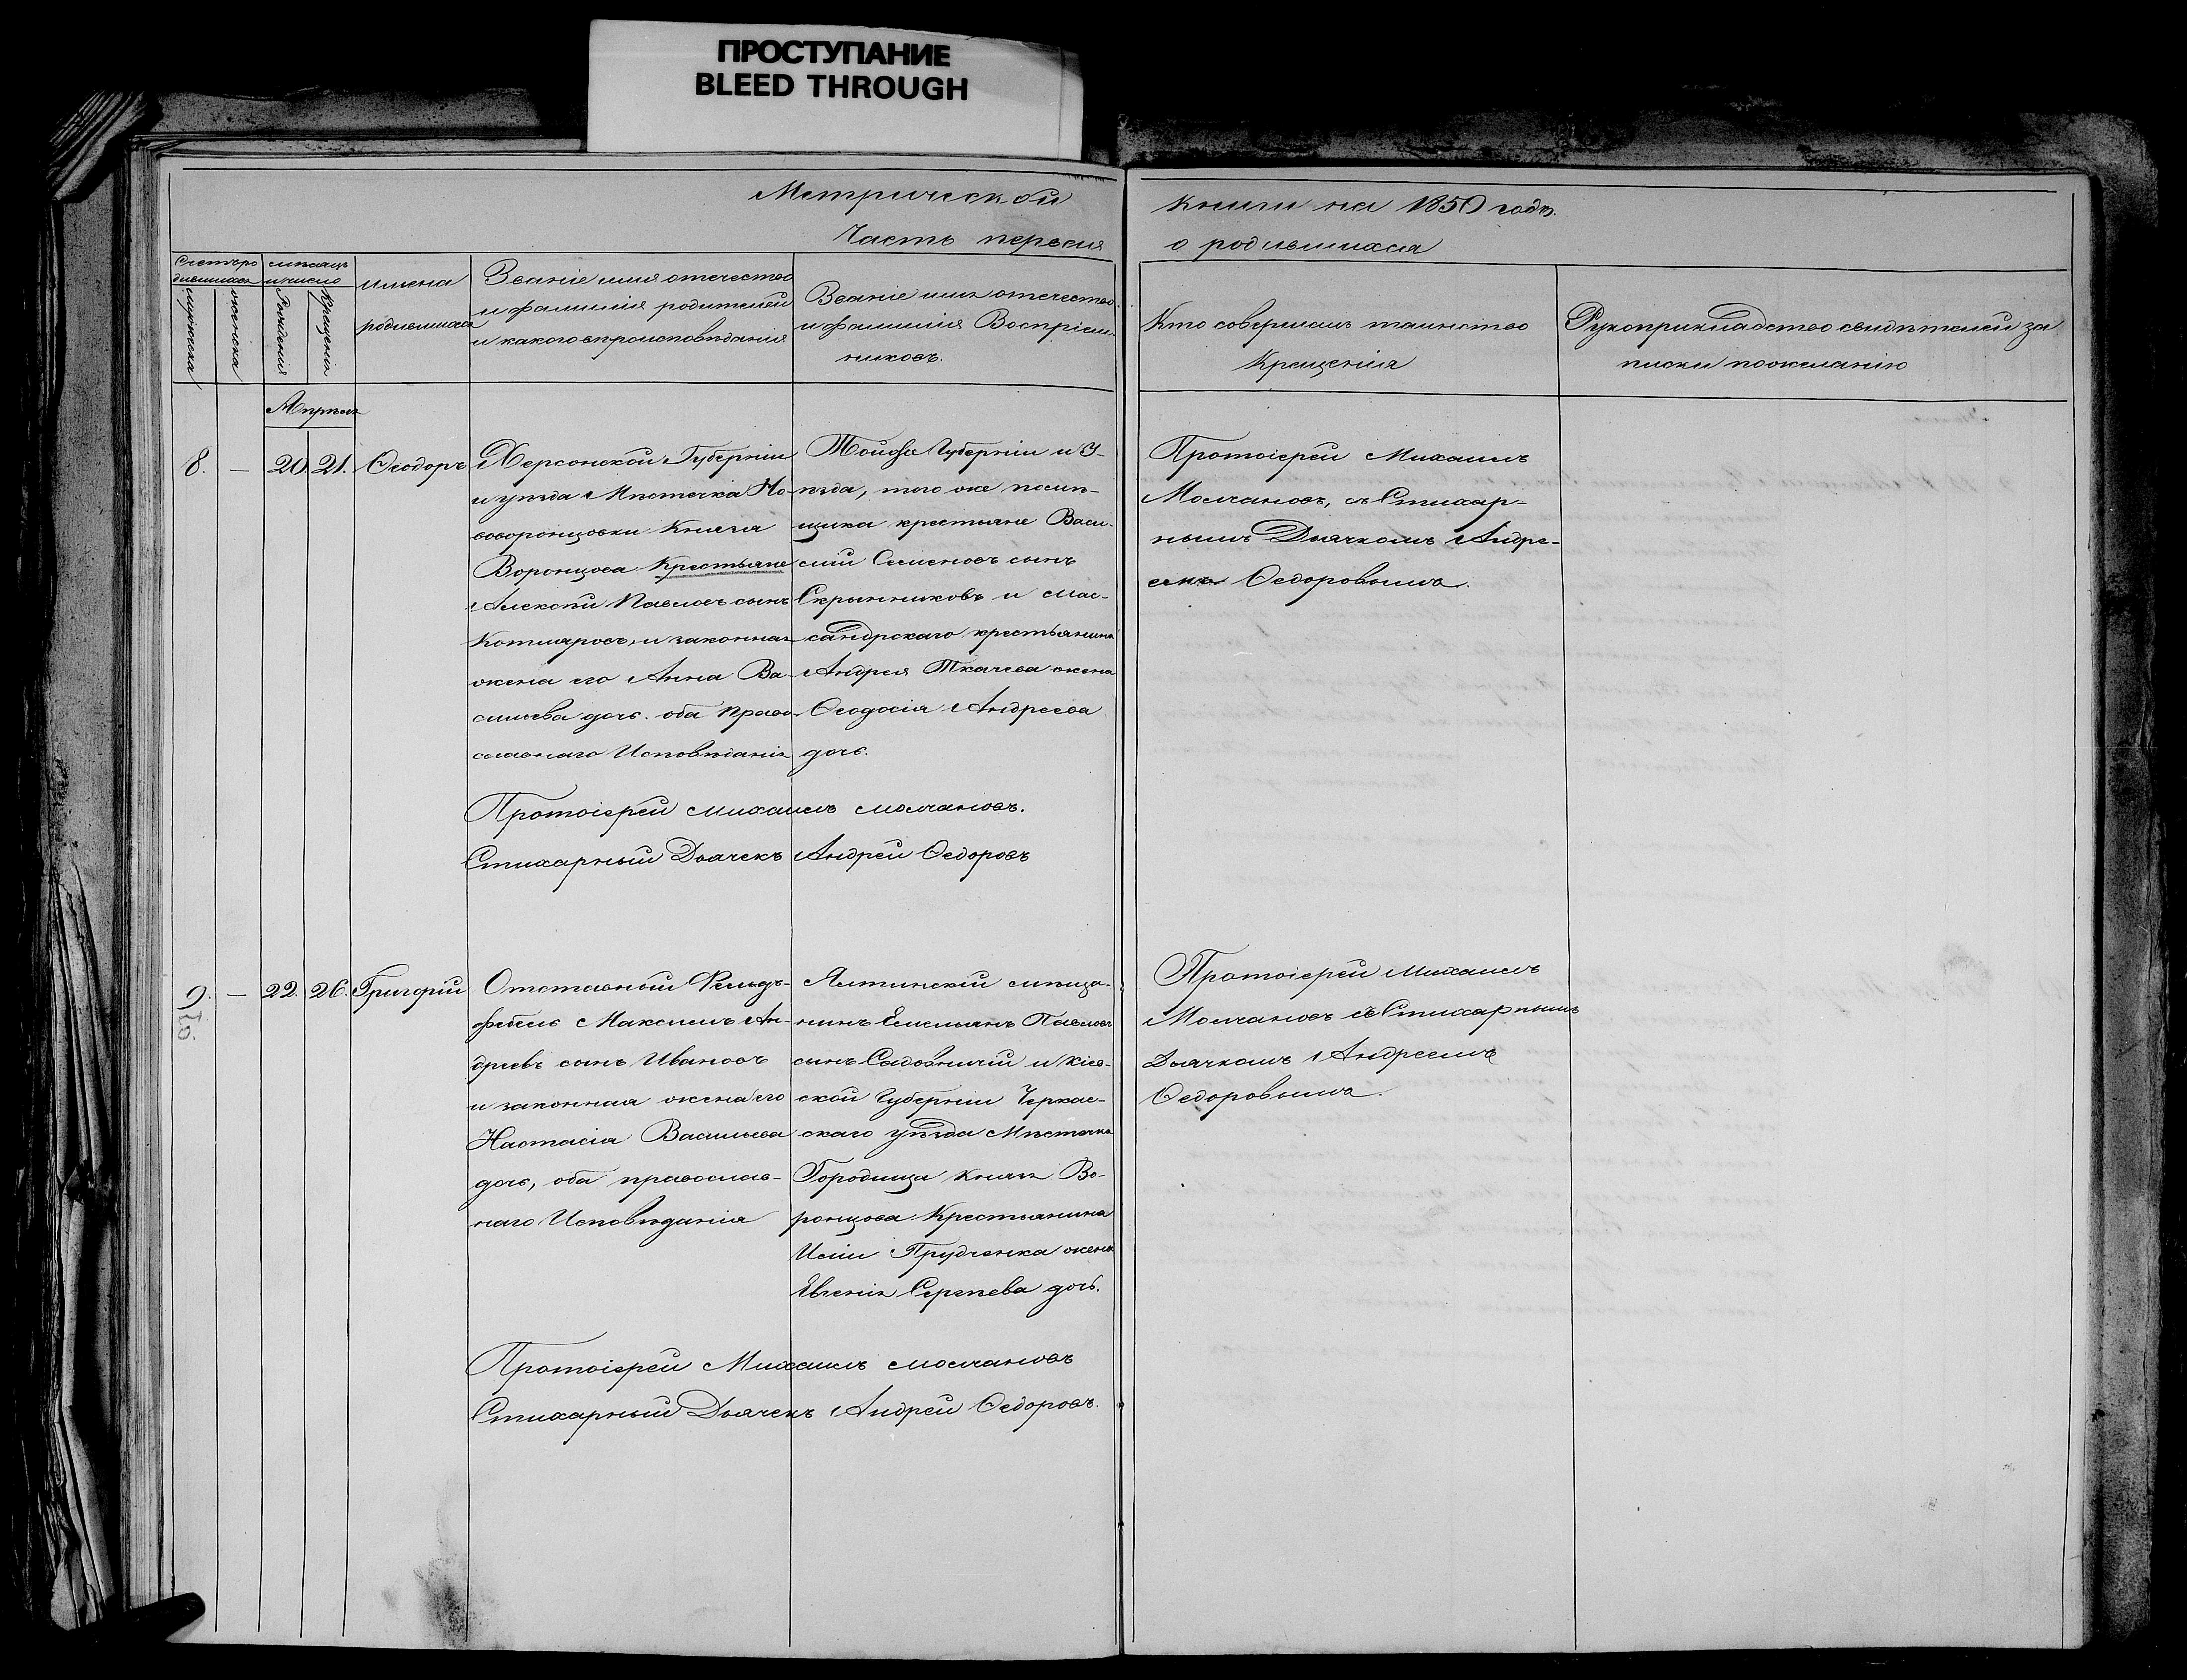 ПРОСТУПАНИЕ
BLEED THROUGH
Метрической
Часть первая
книги на 1850 годъ.
о родившихся
Счетъ ро
дившихся
мужеска
женска
мѣсяцъ
и число
Рожденія
Крещенія
имена
родившихся
Званіе имя отечество
и фамилія родителей
и какого вѣроисповѣданія
Званіе имя отечество
и фамилія Воспріем-
никовъ.
Кто совершалъ таинство
Крещенія
Рукоприкладство свидѣтелей за
писки по желанію
Апрѣль
8. — 20. 21. Ѳеодоръ
Херсонской Губерніи
и уѣзда Мѣстечка Но-
воворонцовки Князя
Воронцова Крестьяне
Алексѣй Павловъ сынъ
Котляровъ, и законная
жена его Анна Ва-
сильева дочь. оба Право-
славнаго Исповѣданія
Тойже Губерніи и У-
ѣзда, того же помѣ-
щика крестьяне Васи-
лій Семеновъ сынъ
Скрынниковъ и Мас-
сандрскаго крестьянина
Андрея Ткачева жена
Ѳеодосія Андреева
дочь.
Протоіерей Михаилъ
Молчановъ, съ Стихар-
нымъ Дьячкомъ Андре-
емъ Ѳедоровымъ.
Протоіерей Михаилъ Молчановъ.
Стихарный Дьячекъ Андрей Ѳедоровъ
9. — 22. 26. Григорій
Отставный Фельд-
фебель Максимъ Ан-
дреевъ сынъ Ивановъ
и законная жена его
Настасія Васильева
дочь, оба православ-
наго Исповѣданія
Ялтинскій мѣща-
нинъ Емельянъ Павловъ
сынъ Садовничій и Кіев-
ской Губерніи Черкас-
скаго уѣзда Мѣстечка
Городища Князя Во-
ронцова Крестьянина
Иліи Прудченка жена
Евгенія Сергѣева дочь.
Протоіерей Михаилъ
Молчановъ съ Стихарнымъ
Дьячкомъ Андреемъ
Ѳедоровымъ.
Протоіерей Михаилъ Молчановъ
Стихарный Дьячекъ Андрей Ѳедоровъ.